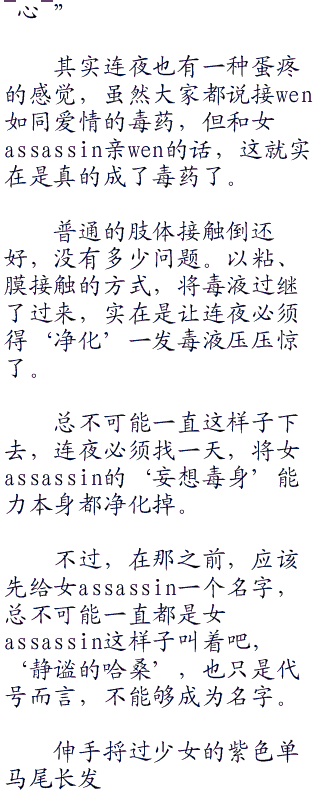 心”
其实连夜也有一种蛋疼
的感觉，虽然大家都说接wen
如同爱情的毒药，但和女
assassin亲wen的话，这就实
在是真的成了毒药了。
普通的肢体接触倒还
好，没有多少问题。以粘、
膜接触的方式，将毒液过继
了过来，实在是让连夜必须
得‘净化’一发毒液压压惊
了。
总不可能一直这样子下
去，连夜必须找一天，将女
assassin的‘妄想毒身’能
力本身都净化掉。
不过，在那之前，应该
先给女assassin一个名字，
总不可能一直都是女
assassin这样子叫着吧，
‘静谧的哈桑’，也只是代
号而言，不能够成为名字。
伸手捋过少女的紫色单
马尾长发